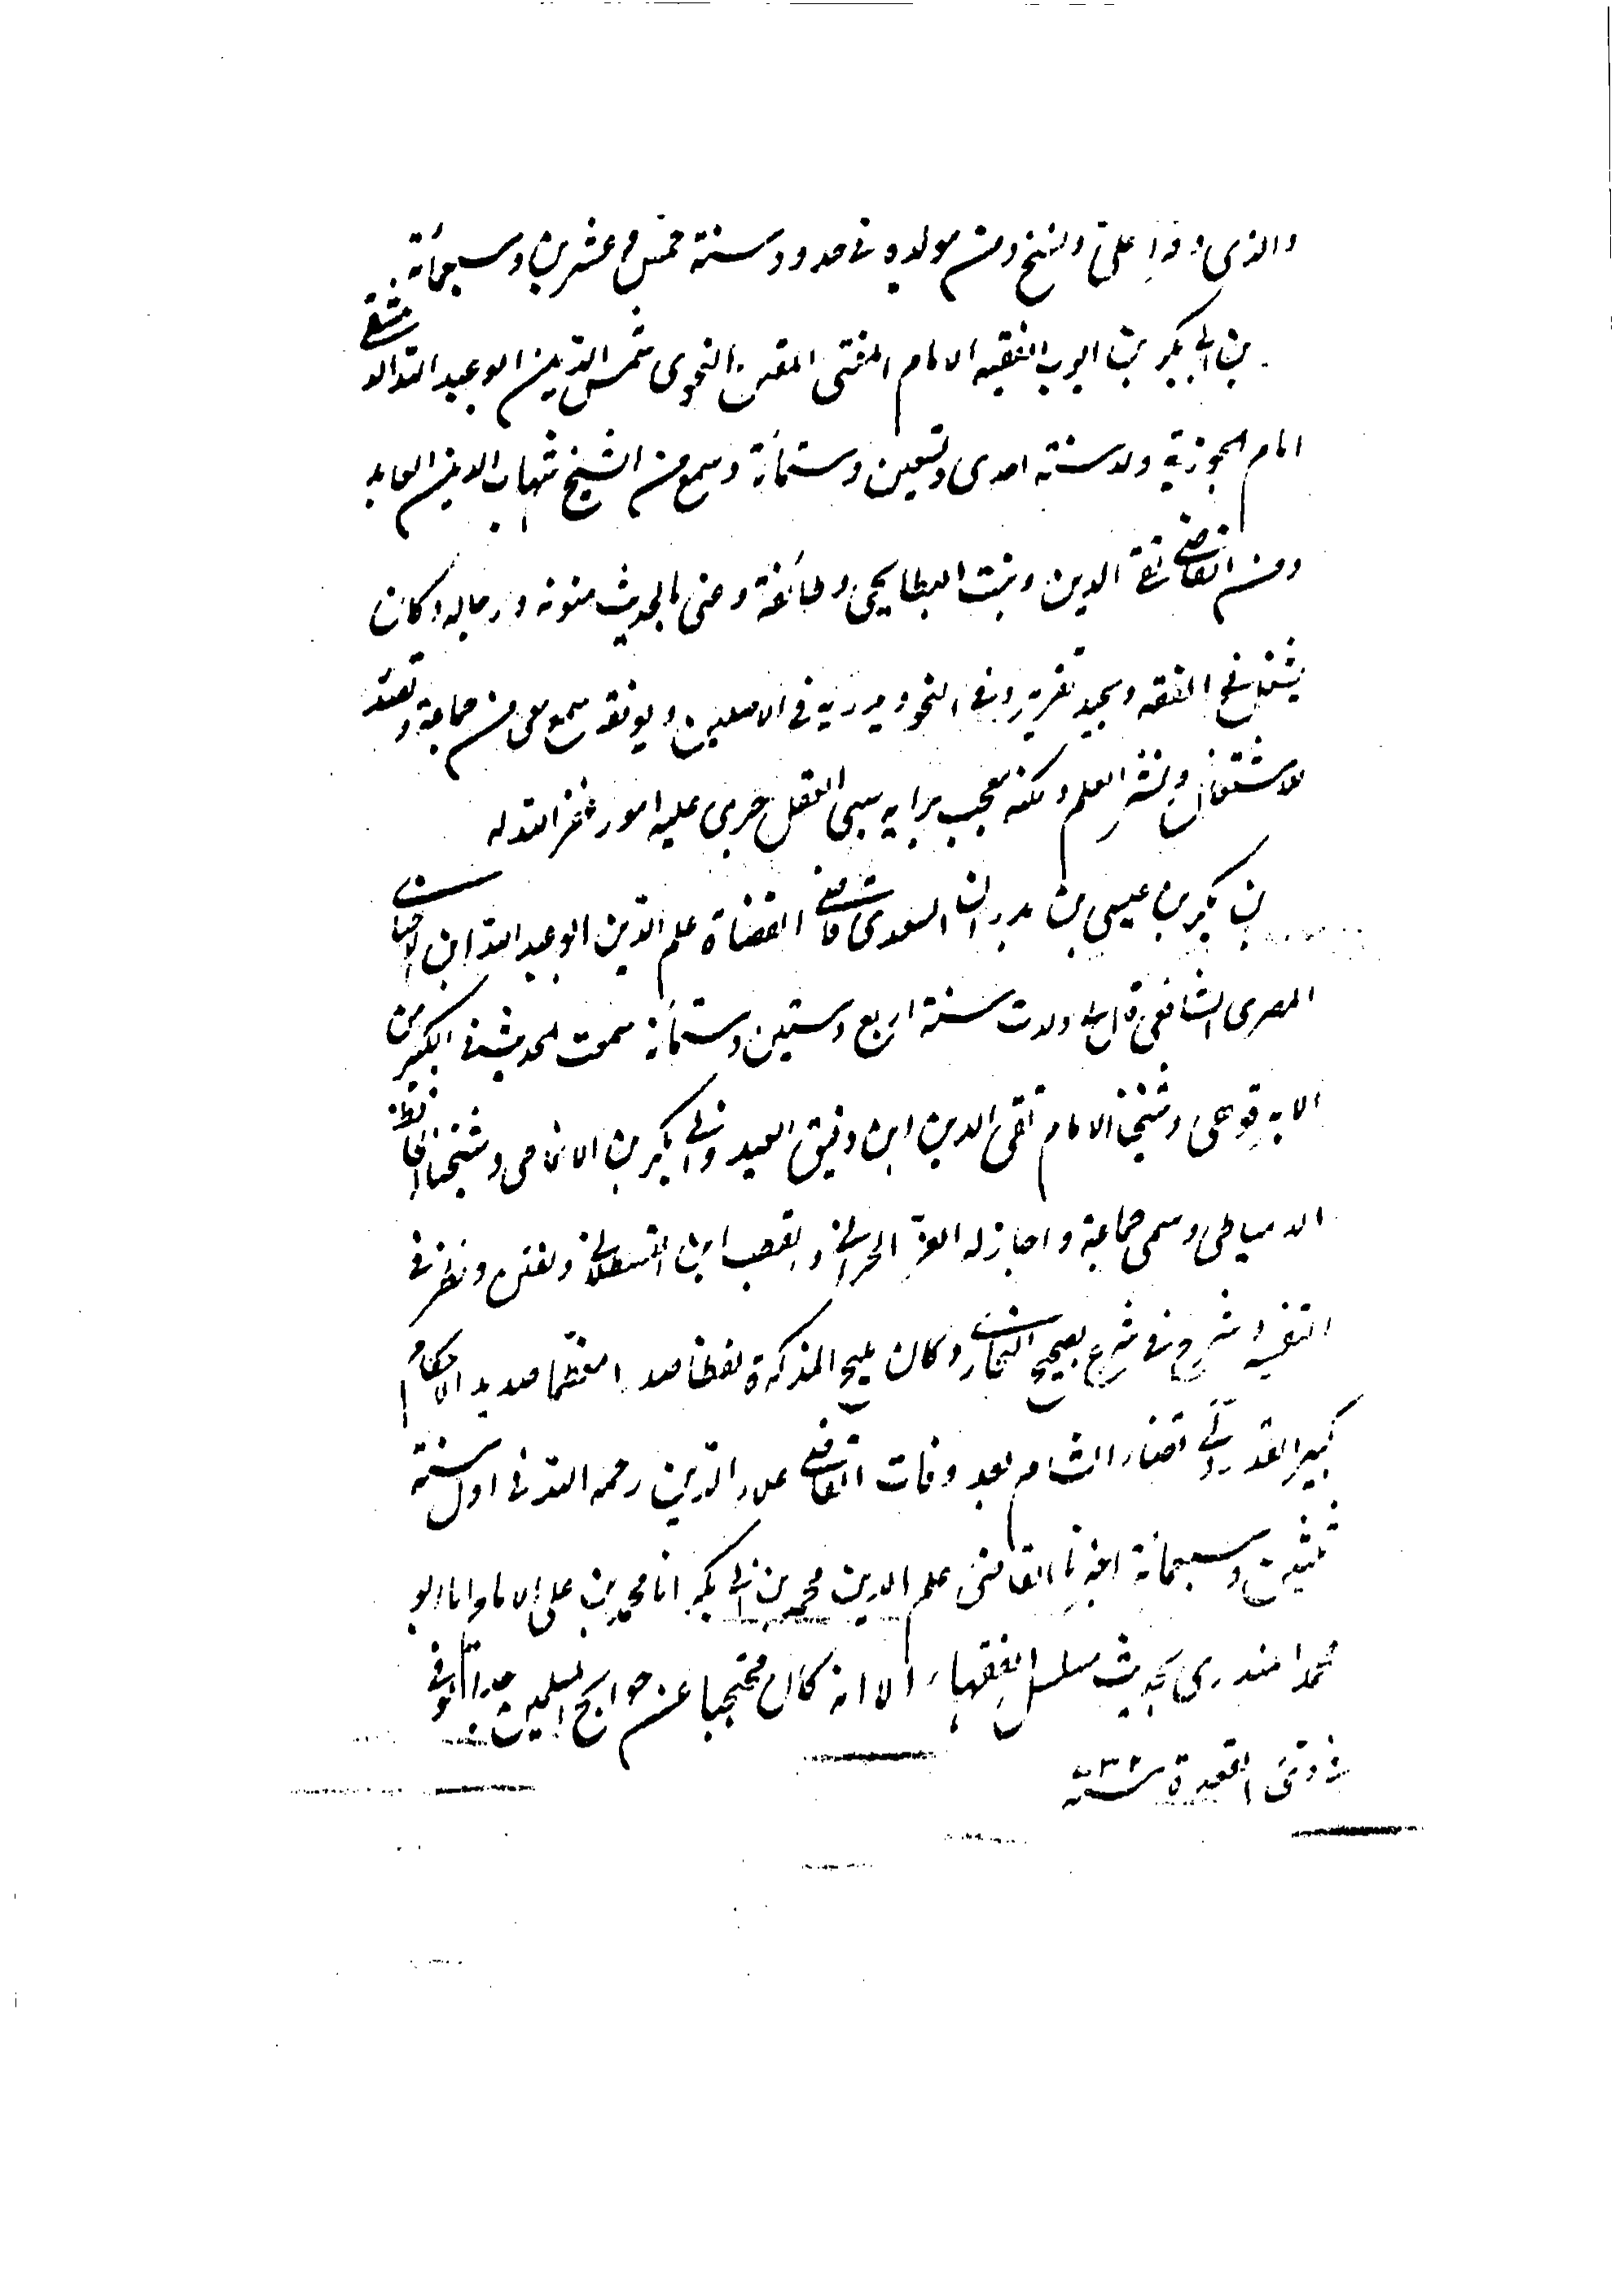 والذى وقرا على ونسخ ومن مولده فى حدود سنة خمس و عشرين وسبعمائة
بن ابى بكر بن ايوب الفقيه الامام المفتى المتفنن النحوى شمس الدين ابو عبد الله الدمشقى
امام الجوزية ولد سنة احدى وتسعين وستمائة وسمع من الشيخ شهاب الدين العابد
ومن القاضى تقى الدين وبنت البطايحى وطائفة وعنى بالحديث متونه ورجاله وكان
يشتغل فى الفقه ويجيد تقريره وفى النحو ويدريه وفى الاصلين و سمع معى من جماعة وتصدر
للاشتغال ونشر العلم ولكنه معجب برايه سيى العقل جرى عليه امور غفر الله له
بن بكر بن عيسى بن بدران السعدى قاضى القضاة علم الدين ابو عبد الله ابن الاخنائى
المصرى الشافعى قال لى ولدت سنة اربع وستين وستمائة سمعت الحديث فى الكبر من
الابرقوهى وشيخنا الامام تقى الدين ابن دقيق العيد وابى بكر بن الانماطى وشيخنا الحافظ
الدمياطى وسمى جماعة واجاز له العز الحرانى والقطب ابن القسطلانى وتفنن ونظر فى
التفسير وشرع فى شرح صحيح البخارى وكان مليح المذاكرة لفظا معظما سديد الاحكام
كبير القدر ولى قضاء الشام بعد وفات القاضى علاء الدين رحمه الله فى اول سنة
ثلثين وسبعمائة اخبرنا القاضى علم الدين محمد بن ابى بكر انا محمد بن على الامام انا ابو
محمد المنذرى بحديث مسلسل بالفقهاء الا انه كان محتجبا عن حوايج المسلمين جدا توفى
فى ذى القعدة سنة ٧٣٢